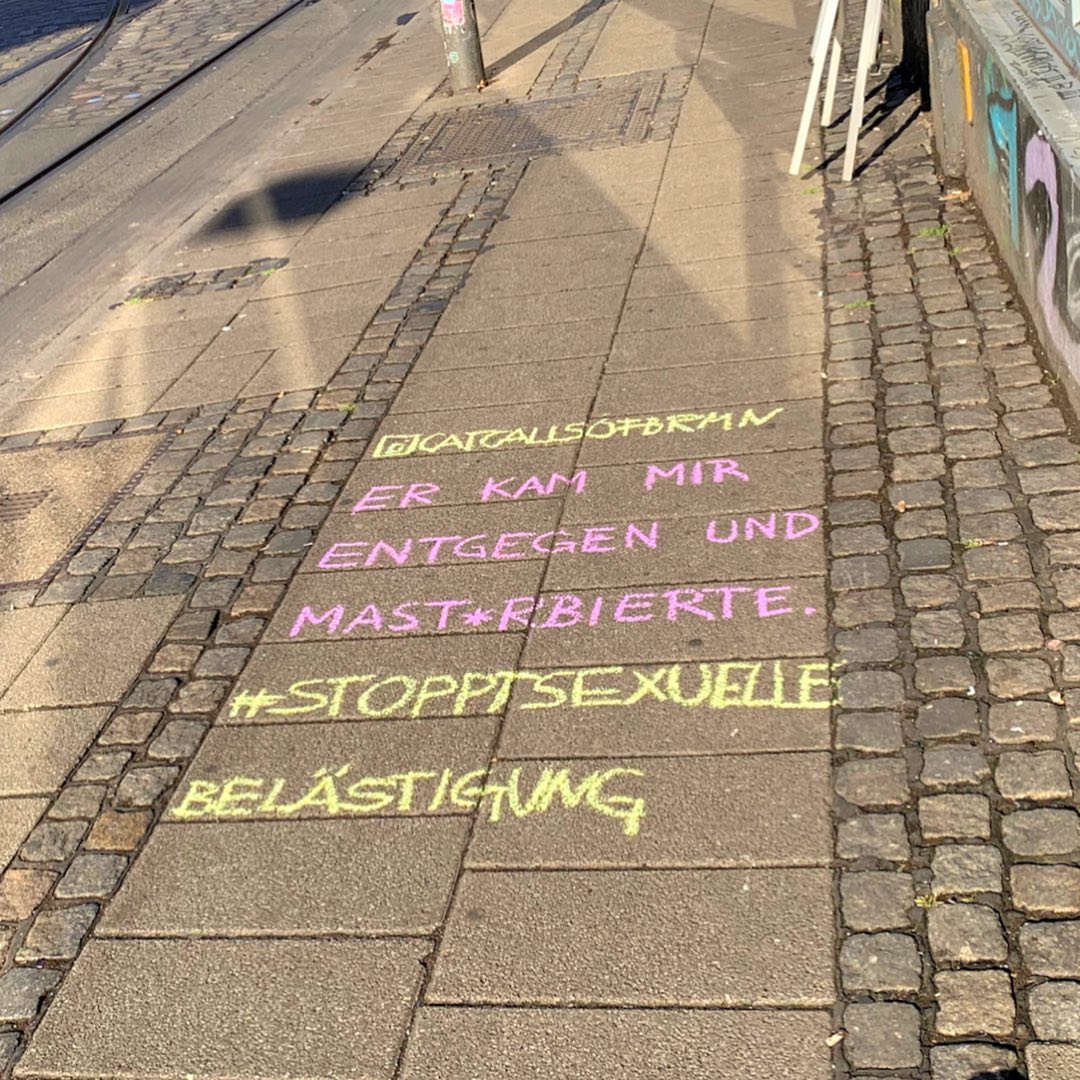 CATCALLSOFBRMN
ER KAM MIR
ENTGEGEN UND
MAST*RBIERTE.
#STOPPTSEXUELLE
BELÄSTIGUNG